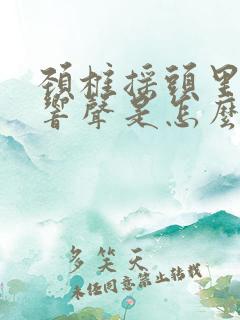 頸柱摇頭里
響聲是怎麼
多笑天
未经同意禁止转载